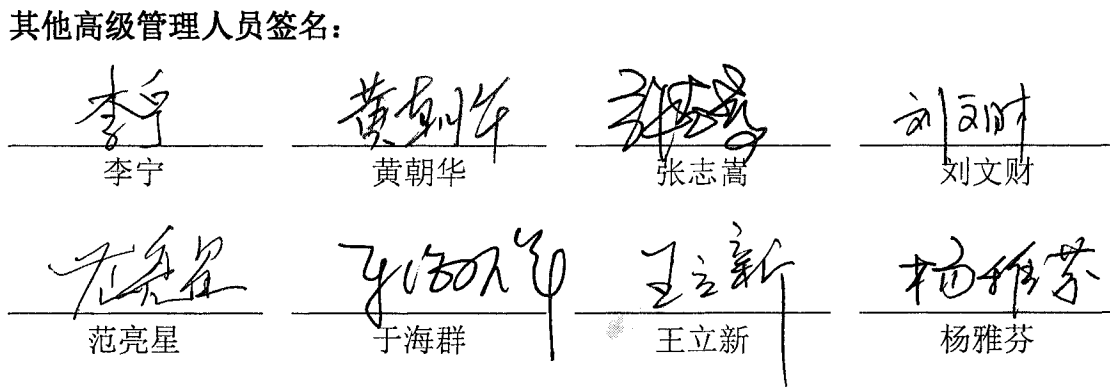 其他高级管理人员签名：
李宁 黄朝华 张志嵩 刘文财
李宁 黄朝华 张志嵩 刘文财
范亮星 于海群 王立新 杨雅芬
范亮星 于海群 王立新 杨雅芬